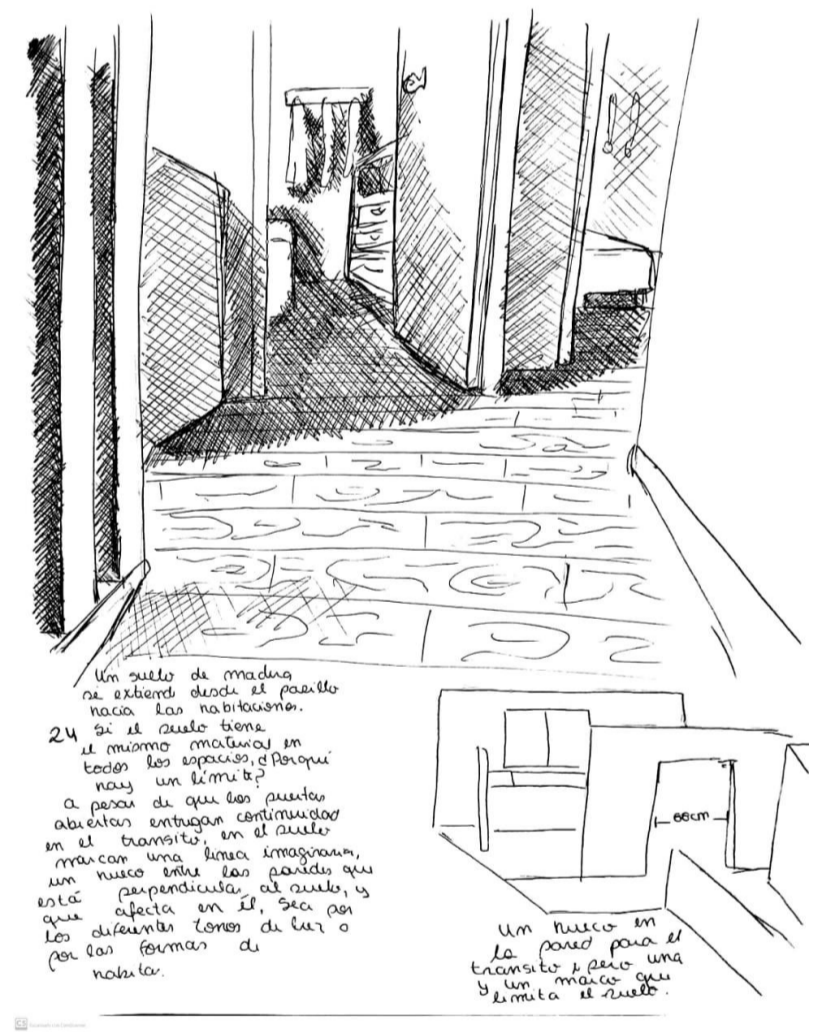 Un suelo de madera
se extiend desde el pasillo
hacia las habitaciones.
24 Si el suelo tiene
el mismo material en
todos los espacios, ¿Porqué
hay un límite?
a pesar de que las puertas
abiertas entregan continuidad
en el transito, en el suelo
marcan una linea imaginaria,
un hueco entre las paredes que
está perpendicular al suelo, y
que afecta en él, sea por
los diferentes tonos de luz o
por las formas de
habitar.
66cm
Un hueco en
la pared para el
transito, pero una
y un marco que
limita el suelo.
CS